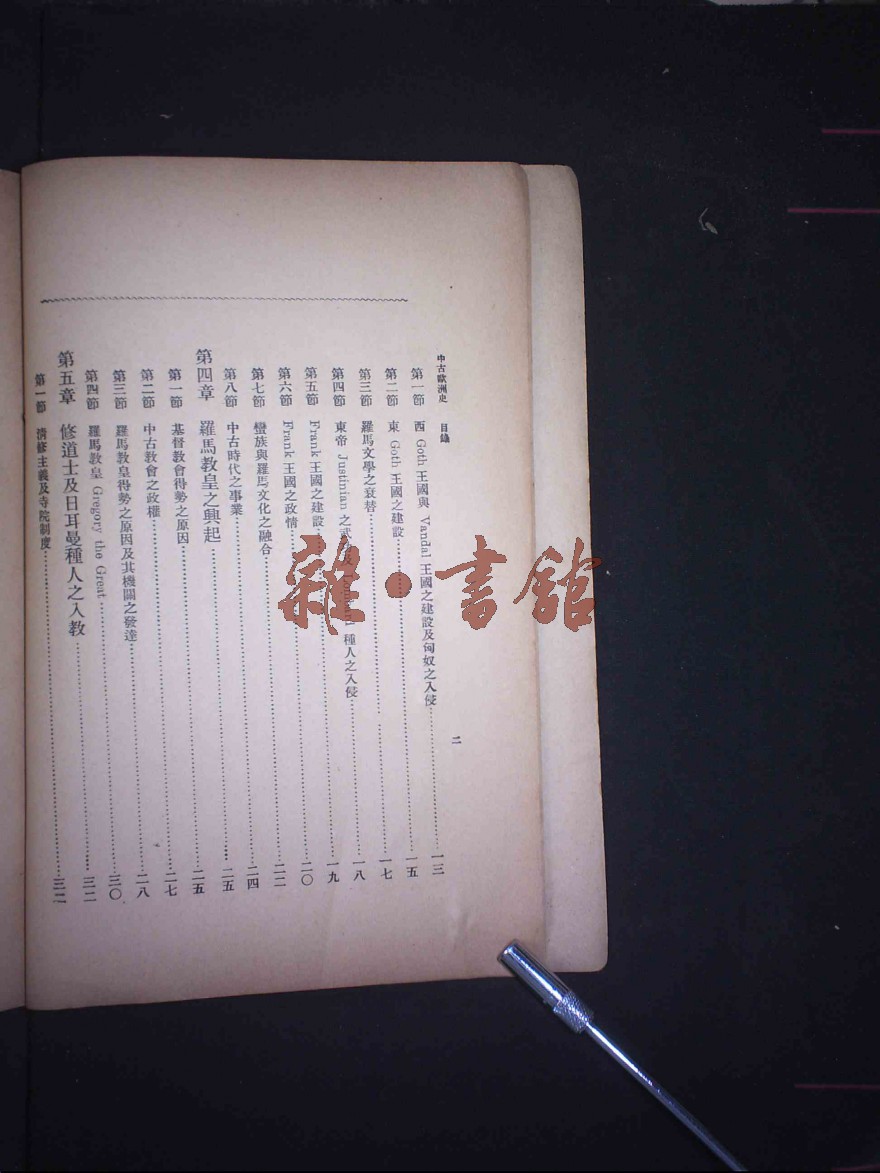 中古歐洲史 目錄 二
第一節 西 Goth 王國與 Vandal 王國之建設及匈奴之入侵……一三
第二節 東 Goth 王國之建設……一五
第三節 羅馬文學之衰替……一七
第四節 東帝 Justinian 之武 種人之入侵……一八
第五節 Frank 王國之建設……一九
第六節 Frank 王國之政情……二〇
第七節 蠻族與羅馬文化之融合……二二
第八節 中古時代之事業……二四
第四章 羅馬教皇之興起……二五
第一節 基督教會得勢之原因……二五
第二節 中古教會之政權……二七
第三節 羅馬教皇得勢之原因及其機關之發達……二八
第四節 羅馬教皇 Gregory the Great……三〇
第五章 修道士及日耳曼種人之入教……三二
第一節 清修主義及寺院制度……三二
雜·書館